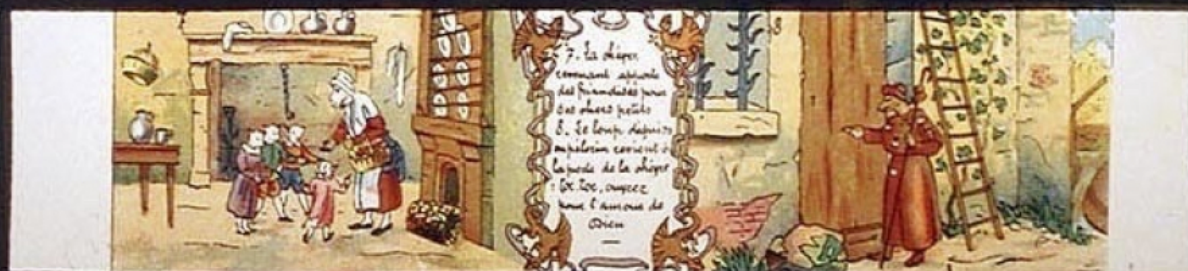 7. La chèvre
revenant apporte
des friandises pour
ses chers petits
8. Le loup déguisé
en pèlerin revient à
la porte de la chèvre
: toc, toc, ouvrez
pour l'amour de
Dieu